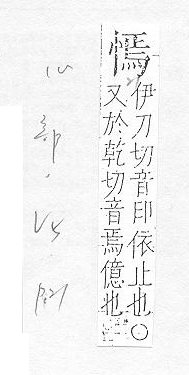 伊刀切音印依止也〇
又於乾切音焉億也
心部